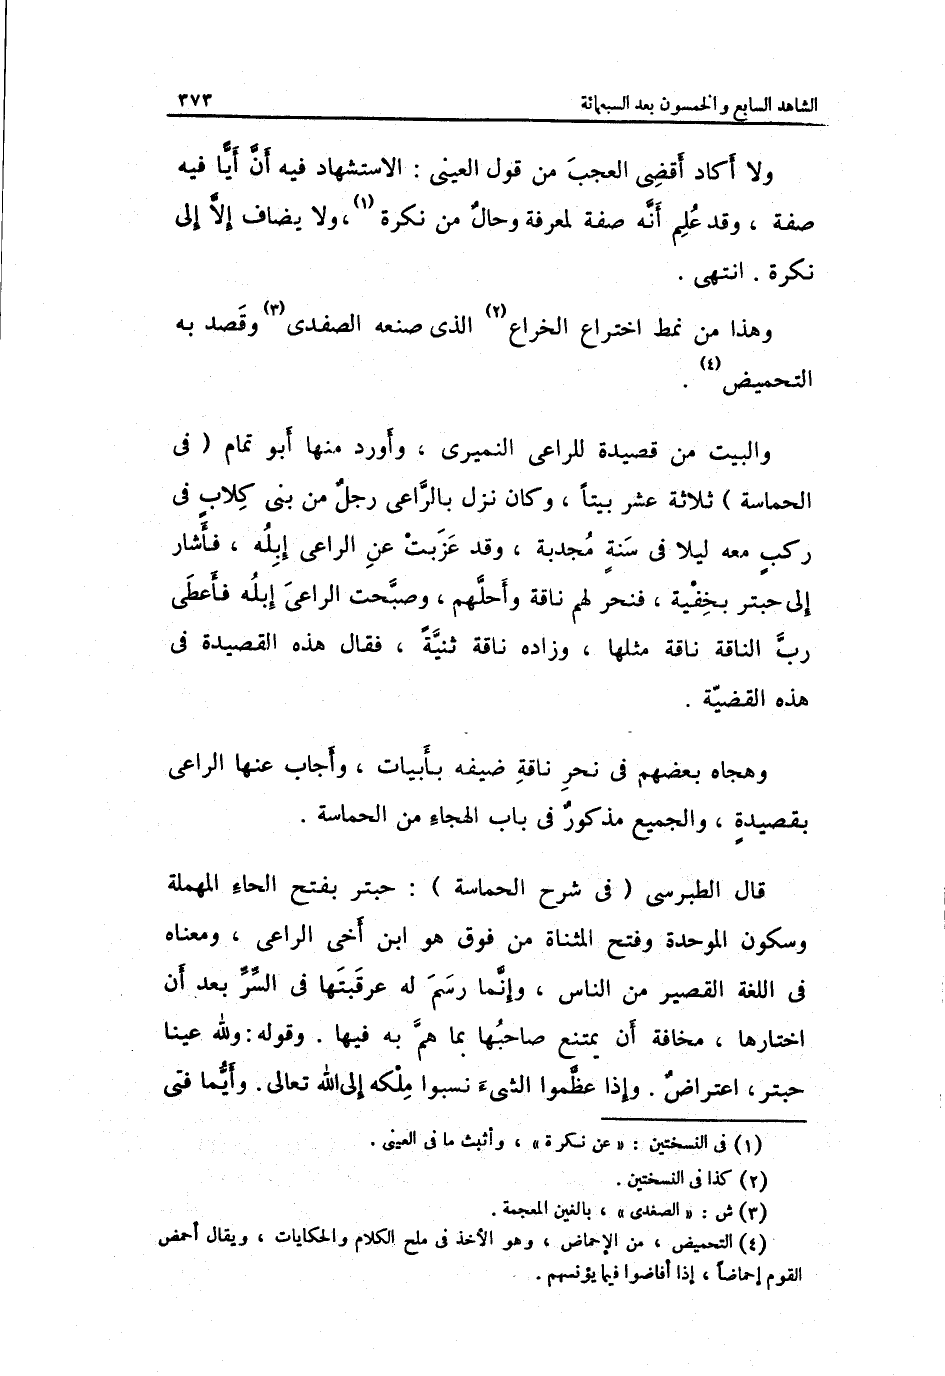 الشاهد السابع والخمسون بعد السبعمائة ٣٧٣
ولا أكاد أقضِى العجبَ من قول العينى : الاستشهاد فيه أنَّ أيًّا فيه
صفة ، وقد عُلِم أنَّه صفة لمعرفة وحالٌ من نكرة (١)، ولا يضاف إلاَّ إلى
نكرة . انتهى .
وهذا من نمط اختراع الخراع(٢) الذى صنعه الصفدى(٣) وقَصد به
التحميض(٤) .
والبيت من قصيدة للراعى النميرى ، وأورد منها أبو تمام ( فى
الحماسة ) ثلاثة عشر بيتاً ، وكان نزل بالرَّاعى رجلٌ من بنى كِلابٍ فى
ركبٍ معه ليلا فى سَنةٍ مُجدبة ، وقد عَزَبتْ عنِ الراعى إبِلُه ، فأشار
إلى حبتر بخِفْية ، فنحر لهم ناقة وأحلَّهم ، وصبَّحت الراعىَ إبلُه فأعطَى
ربَّ الناقة ناقة مثلها ، وزاده ناقة ثنيَّةً ، فقال هذه القصيدة فى
هذه القضيّة .
وهجاه بعضهم فى نحرِ ناقةِ ضيفه بأبيات ، وأجاب عنها الراعى
بقصيدةٍ ، والجميع مذكورٌ فى باب الهجاءِ من الحماسة .
قال الطبرسى ( فى شرح الحماسة ) : حبتر بفتح الحاءِ المهملة
وسكون الموحدة وفتح المثناة من فوق هو ابن أخى الراعى ، ومعناه
فى اللغة القصير من الناس ، وإنَّما رسَمَ له عرقَبتَها فى السِّرِّ بعد أن
اختارها ، مخافة أن يمتنع صاحبُها بما همَّ به فيها . وقوله: ولله عينا
حبتر، اعتراضٌ . وإذا عظَّموا الشىءَ نسبوا مِلْكه إلى الله تعالى. وأيُّما فتى
(١) فى النسختين : « عن نكرة » ، وأثبت ما فى العينى .
(٢) كذا فى النسختين .
(٣) ش : « الصغدى » ، بالغين المعجمة .
(٤) التحميض ، من الإحماض ، وهو الأخذ فى ملح الكلام والحكايات ، ويقال أحمض
القوم إحماضاً ، إذا أفاضوا فيما يؤنسهم .